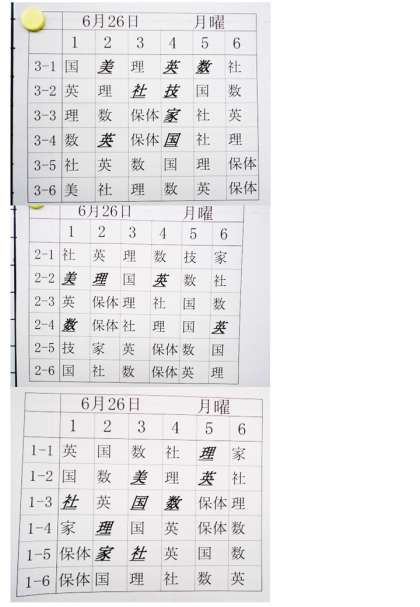 6月26日 月曜
1 2 3 4 5 6
3-1 国 美 理 英 数 社
3-2 英 理 社 技 国 数
3-3 理 数 保体 家 社 英
3-4 数 英 保体 国 社 理
3-5 社 英 数 国 理 保体
3-6 美 社 理 数 英 保体
6月26日 月曜
1 2 3 4 5 6
2-1 社 英 理 数 技 家
2-2 美 理 国 英 数 社
2-3 英 保体 理 社 国 数
2-4 数 保体 社 理 国 英
2-5 技 家 英 保体 数 国
2-6 国 社 数 保体 英 理
6月26日 月曜
1 2 3 4 5 6
1-1 英 国 数 社 理 家
1-2 国 数 美 理 英 社
1-3 社 英 国 数 保体 理
1-4 家 理 国 英 保体 数
1-5 保体 家 社 英 国 数
1-6 保体 国 理 社 数 英